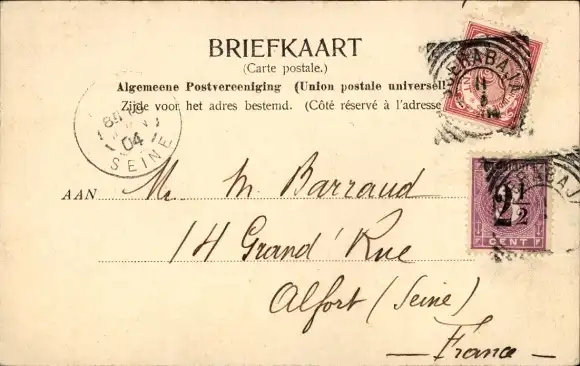 BRIEFKAART
(Carte postale.)
Algemeene Postvereeniging (Union postale universell
Zijde voor het adres bestemd. (Côté réservé à l'adresse
SOERABAJA
04
SEINE
AAN Mr. M. Barraud
14 Grand' Rue
Alfort (Seine)
— France —
2 1/2
CENT